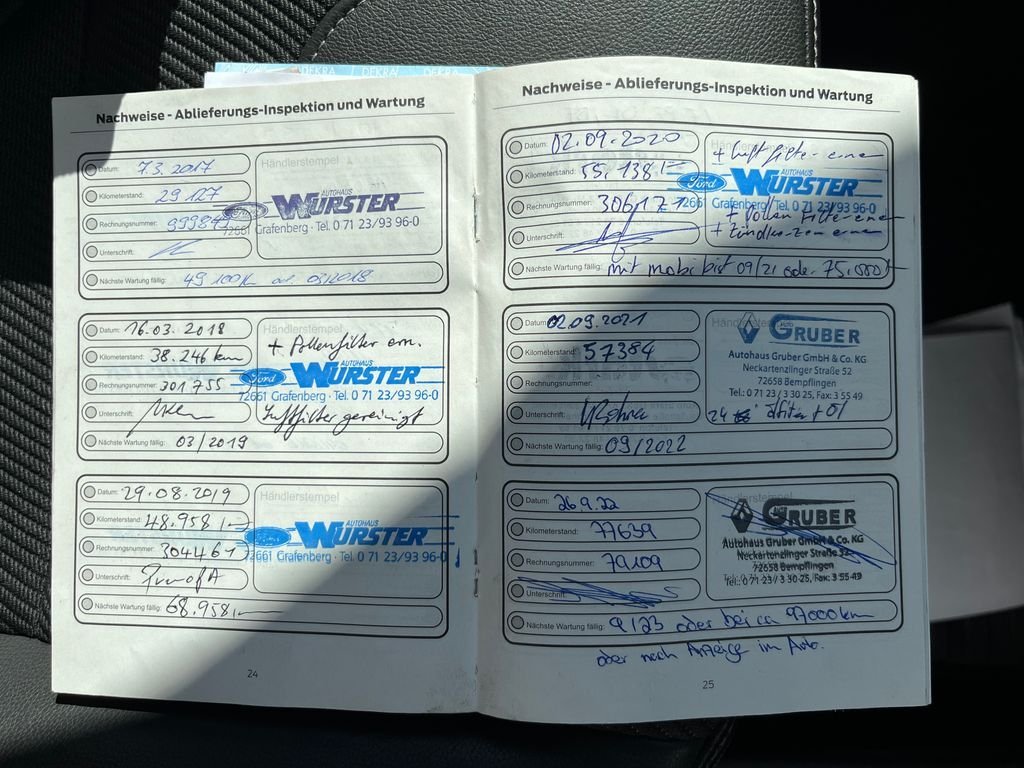 DEKRA DEKRA DEKRA
Nachweise - Ablieferungs-Inspektion und Wartung
Datum: 7.3.2017
Händlerstempel
Kilometerstand: 29 127
AUTOHAUS
WURSTER
Rechnungsnummer:
Ford
72661 Grafenberg · Tel. 0 71 23/93 96-0
Unterschrift:
Nächste Wartung fällig: 49 100 km od. 03/2018
Datum: 16.03.2018
Händlerstempel
+ Pollenfilter ern.
Kilometerstand: 38.246 km
AUTOHAUS
Ford WURSTER
Rechnungsnummer: 301755
72661 Grafenberg · Tel. 0 71 23/93 96-0
Unterschrift:
Luftfilter gereinigt
Nächste Wartung fällig: 03/2019
Datum: 29.08.2019
Händlerstempel
Kilometerstand: 48.958
AUTOHAUS
Ford WURSTER
Rechnungsnummer: 304461
72661 Grafenberg · Tel. 0 71 23/93 96-0
Unterschrift:
Nächste Wartung fällig: 68.958
24
Nachweise - Ablieferungs-Inspektion und Wartung
Datum: 02.09.2020
+ Luftfilter
Kilometerstand: 55.138
AUTOHAUS
Ford WURSTER
Rechnungsnummer: 306171
72661 Grafenberg · Tel. 0 71 23/93 96-0
+ Pollenfilter
Unterschrift:
+ Zündkerzen
Nächste Wartung fällig: mit mobi bis 09/21 oder 75.000
Datum: 02.09.2021
Händlerstempel
GRUBER
Kilometerstand: 57384
Autohaus Gruber GmbH & Co. KG
Neckartenzlinger Straße 52
Rechnungsnummer:
72658 Bempflingen
Tel.: 0 71 23 / 3 30 25, Fax: 3 55 49
Unterschrift:
Nächste Wartung fällig: 09/2022
Datum: 26.9.22
Händlerstempel
GRUBER
Kilometerstand: 77639
Autohaus Gruber GmbH & Co. KG
Neckartenzlinger Straße 52
Rechnungsnummer: 79109
72658 Bempflingen
Tel.: 0 71 23 / 3 30 25, Fax: 3 55 49
Unterschrift:
Nächste Wartung fällig: 9/23 oder bei ca 97000km
oder nach Anzeige im Auto.
25